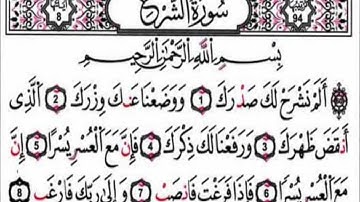 آياتها 8 سورة الشرح ترتيبها 94
بِسْمِ اللَّهِ الرَّحْمَٰنِ الرَّحِيمِ
أَلَمْ نَشْرَحْ لَكَ صَدْرَكَ 1 وَوَضَعْنَا عَنكَ وِزْرَكَ 2 الَّذِي
أَنقَضَ ظَهْرَكَ 3 وَرَفَعْنَا لَكَ ذِكْرَكَ 4 فَإِنَّ مَعَ الْعُسْرِ يُسْرًا 5 إِنَّ
مَعَ الْعُسْرِ يُسْرًا 6 فَإِذَا فَرَغْتَ فَانصَبْ 7 وَإِلَىٰ رَبِّكَ فَارْغَب 8